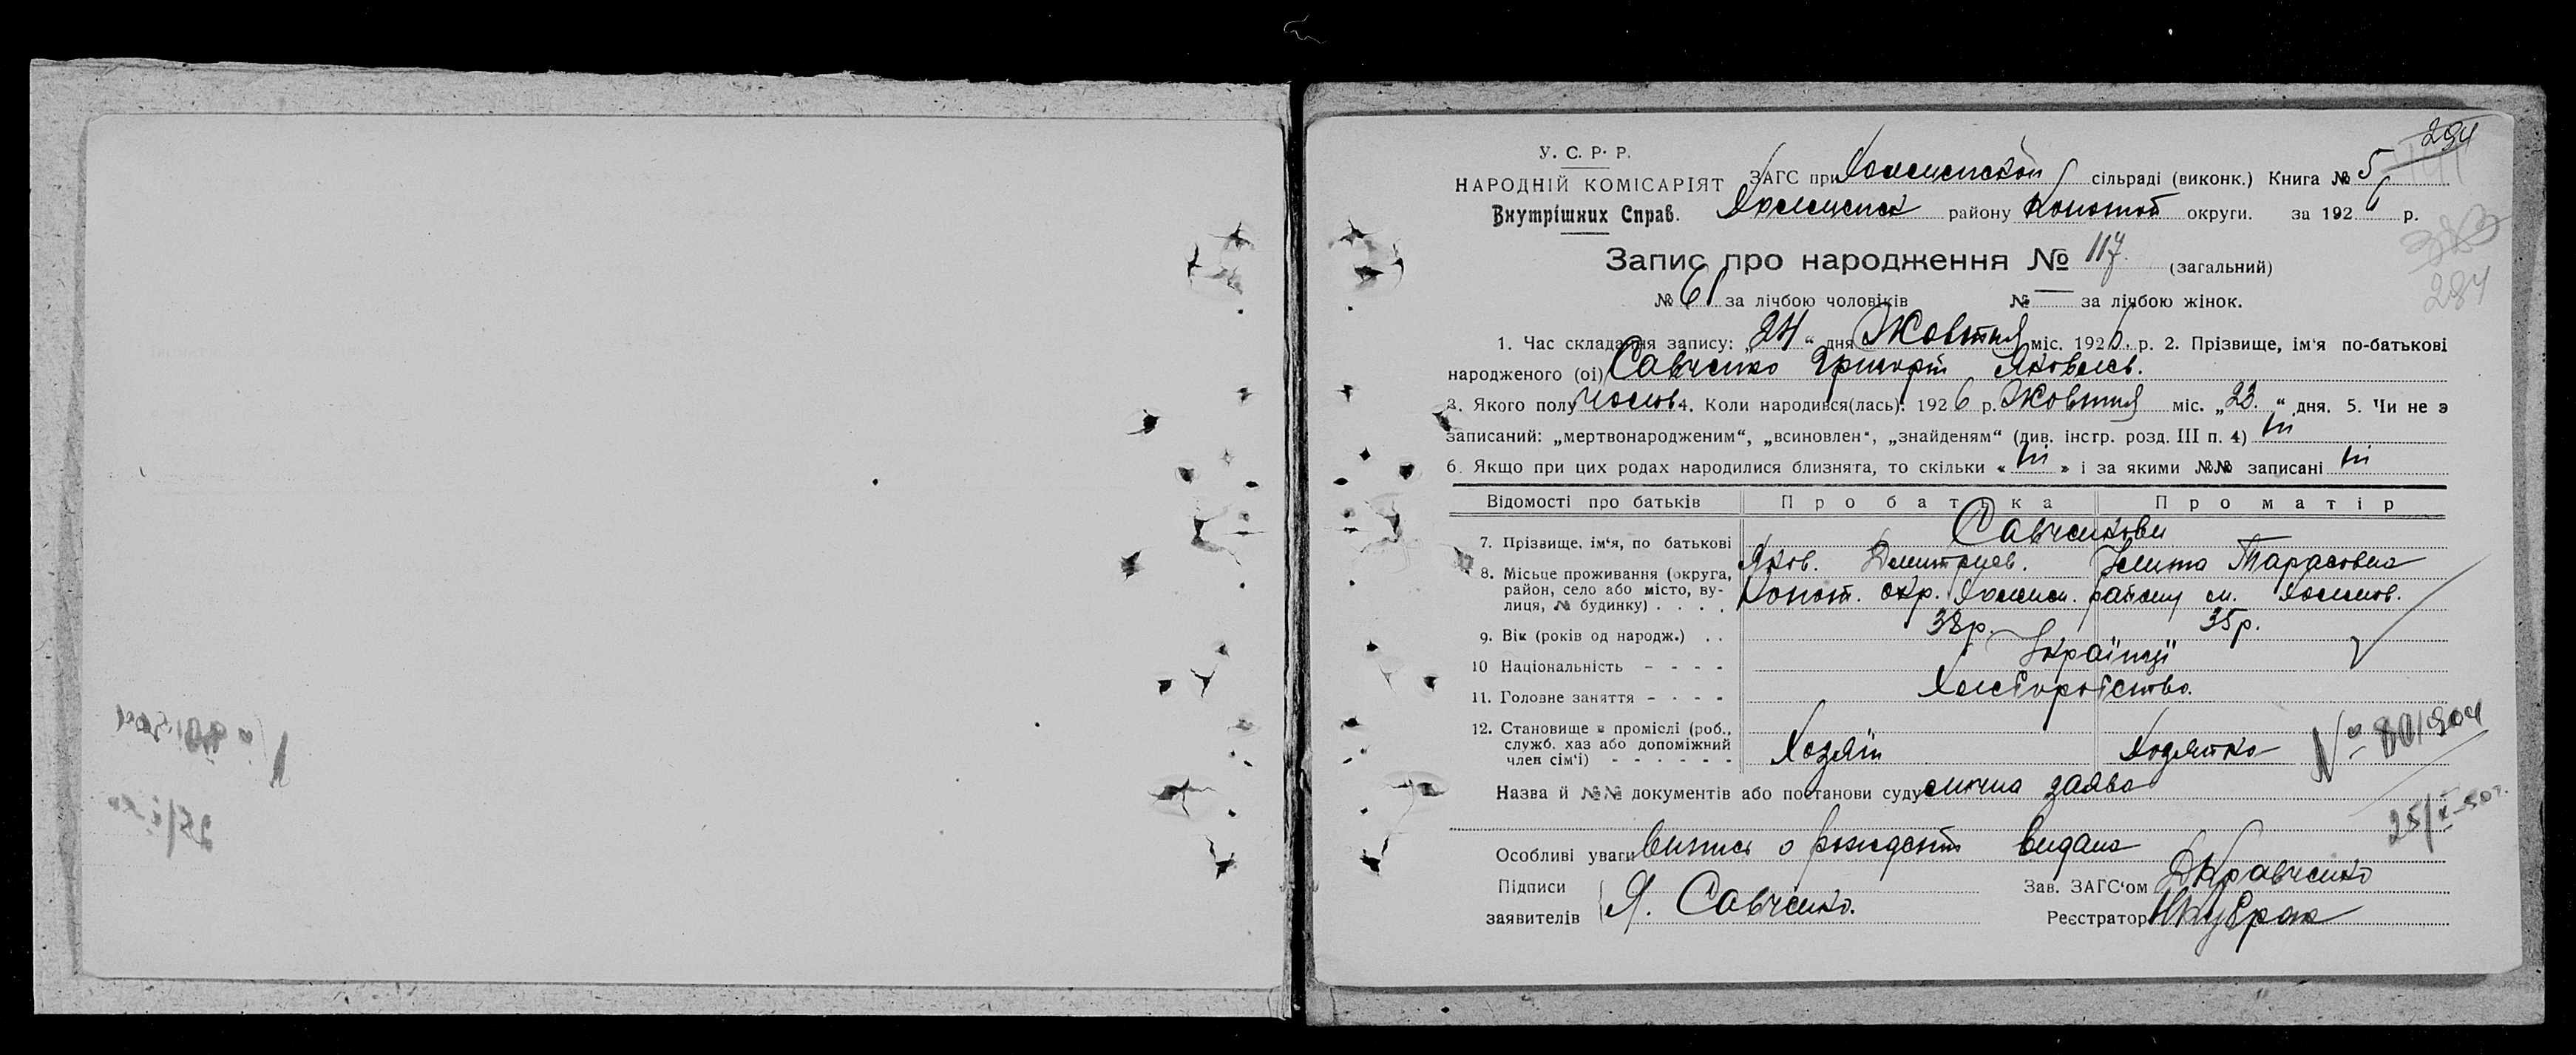 294
У. С. Р. Р.
НАРОДНІЙ КОМІСАРІЯТ
Внутрішних Справ.
ЗАГС при Хмелевской сільраді (виконк.) Книга № 5
Хмелевск району Конотоп округи. за 1926 р.
Запис про народження № 117 (загальний)
284
№ 61 за лічбою чоловіків № — за лічбою жінок.
1. Час складання запису: „24“ дня Жовтня міс. 1926 р. 2. Прізвище, ім'я по-батькові
народженого (ої) Савченко Григорій Яковлев.
3. Якого полу Чолов 4. Коли народився(лась): 1926 р. Жовтня міс. „23.“ дня. 5. Чи не э
записаний: „мертвонародженим“, „всиновлен“, „знайденям“ (див. інстр. розд. III п. 4) Ні
6. Якщо при цих родах народилися близнята, то скільки « Ні » і за якими №№ записані Ні
Відомості про батьків Про батька Про матір
7. Прізвище, ім'я, по батькові Савченкови
Яков. Дмитриев. Тарасовна
8. Місьце проживання (округа, район, село або місто, вулиця, № будинку) . . . . Конот. окр. району
9. Вік (років од народж.) . . 38р. 35р.
10 Національність - - - - Українці
11. Головне заняття - - - - Хліборобство.
12. Становище в промислі (роб., служб. хаз або допоміжний член сім'ї) - - - - - - Хозяїн Хозяйка
№ 801904
Назва й №№ документів або постанови суду заява
25/X-50г.
Особливі уваги Випись о рождении видана
Підписи
заявителів Я. Савченко.
Зав. ЗАГС'ом ДКравченко
Реєстратор